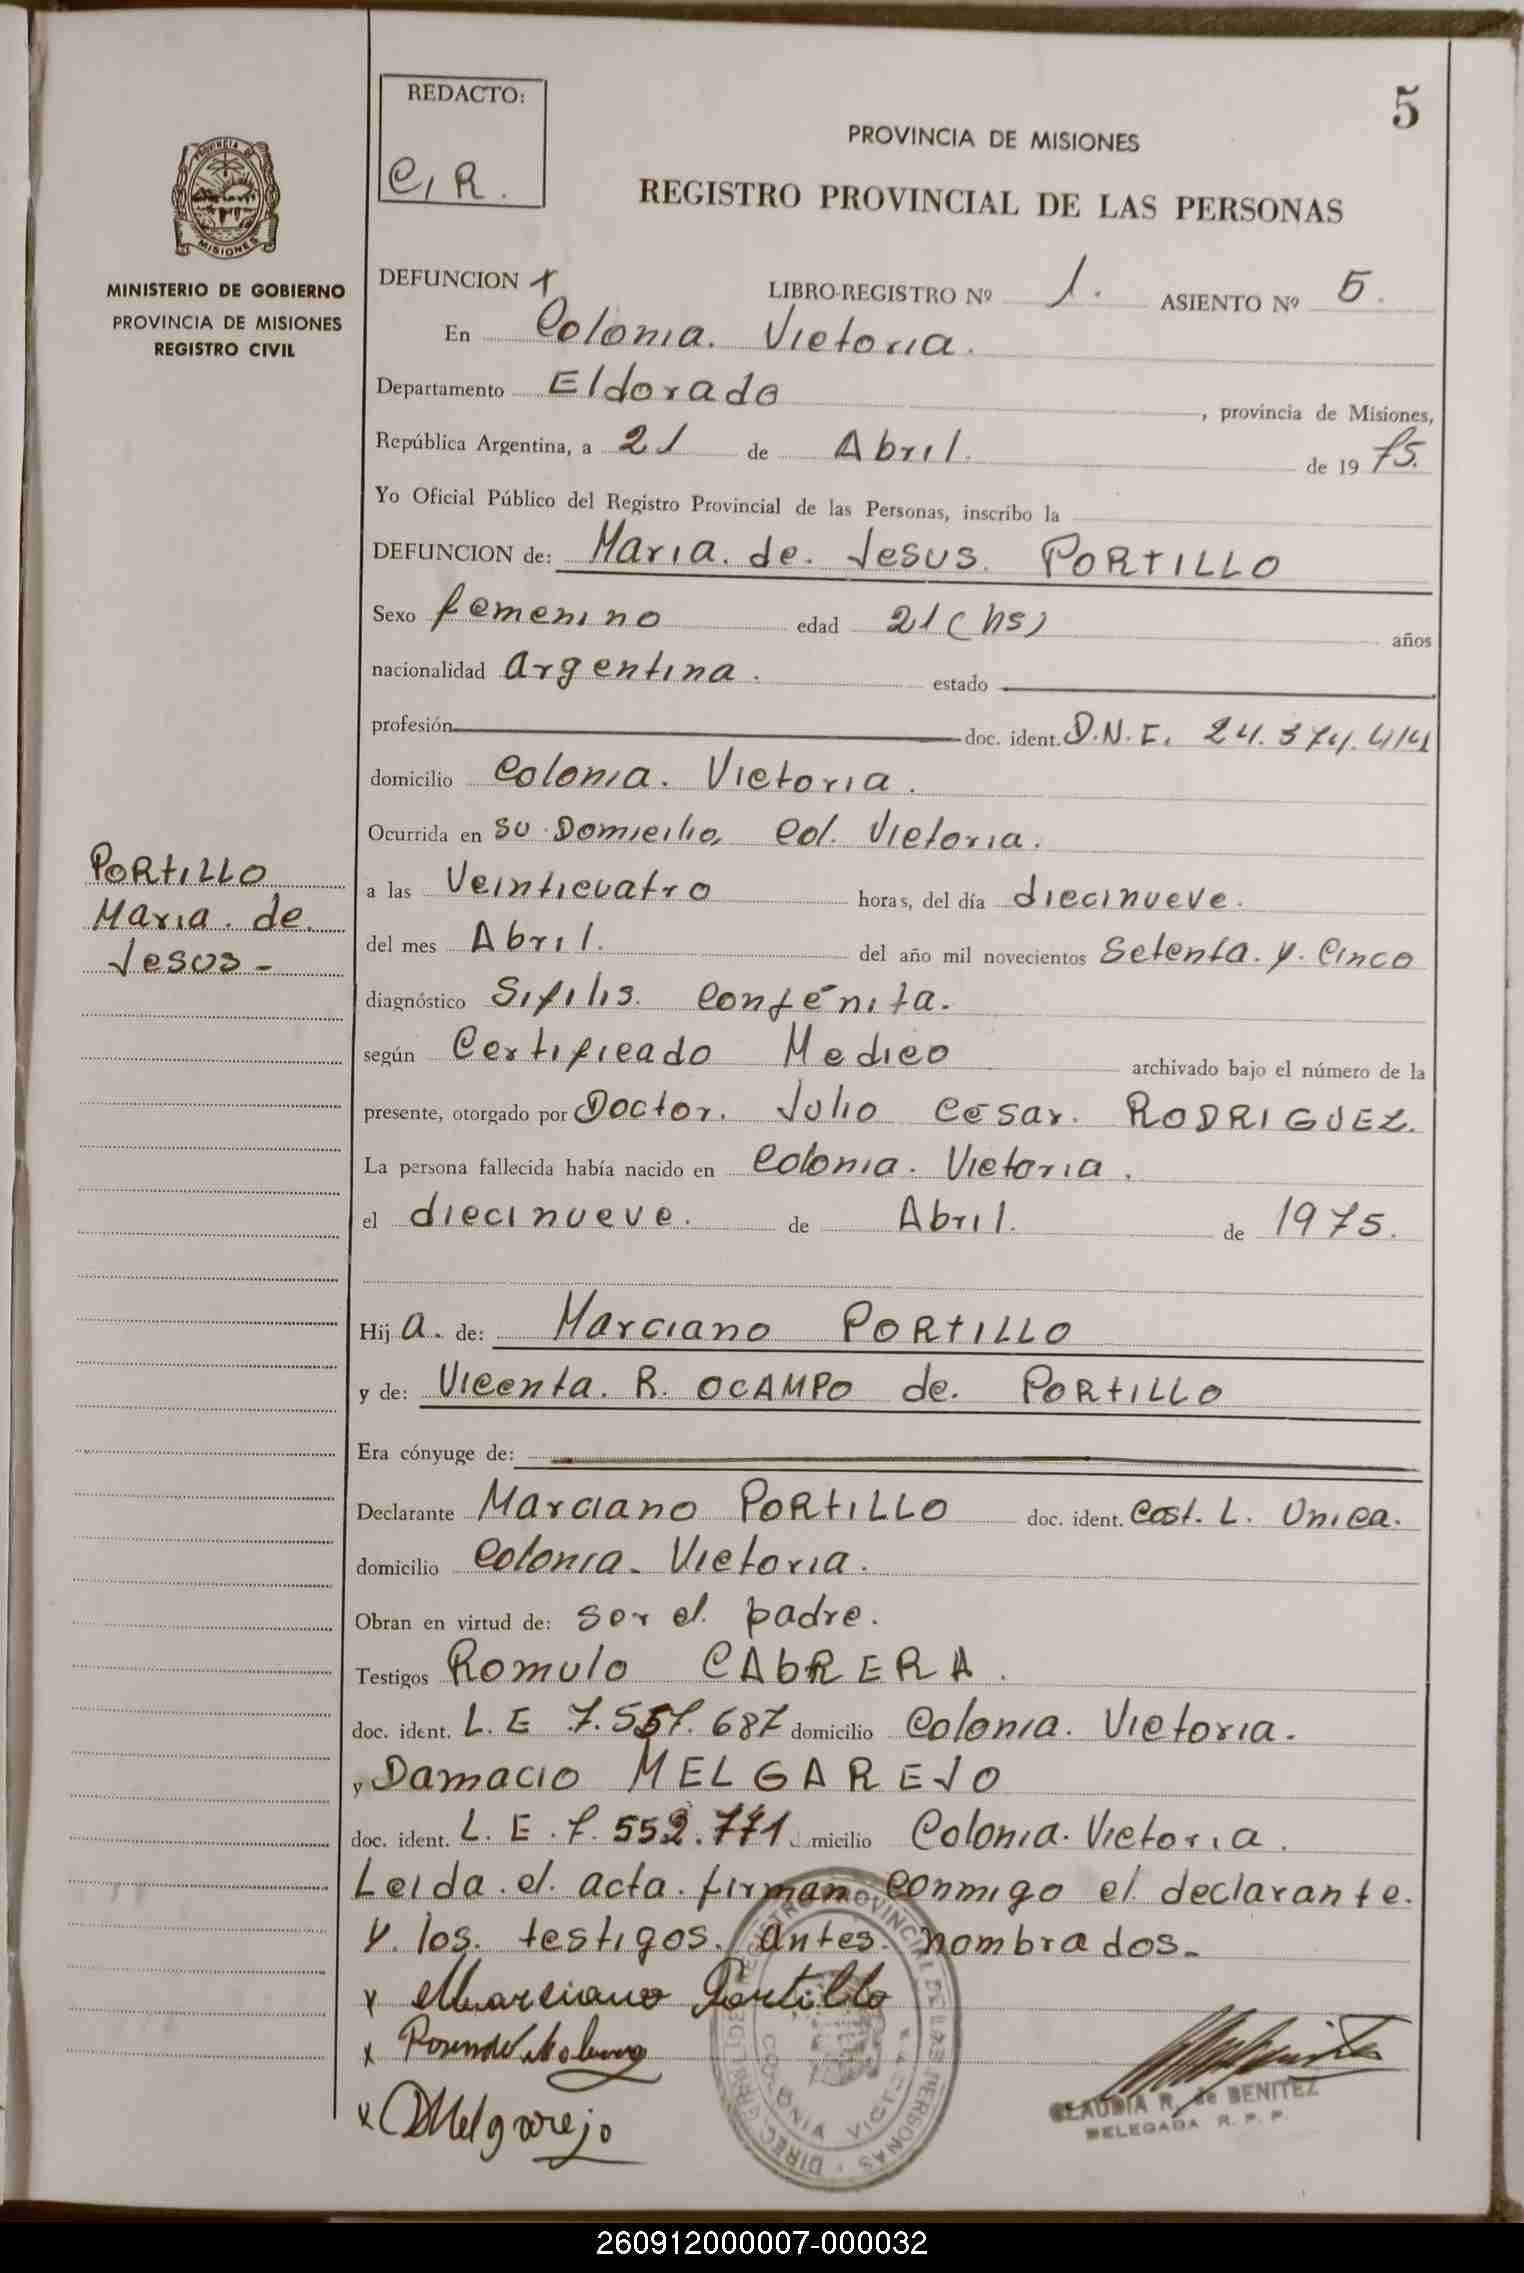 5
REDACTO:
C, R.
PROVINCIA DE MISIONES
REGISTRO PROVINCIAL DE LAS PERSONAS
PROVINCIA DE
MISIONES
MINISTERIO DE GOBIERNO
PROVINCIA DE MISIONES
REGISTRO CIVIL
DEFUNCION + LIBRO-REGISTRO Nº 1. ASIENTO Nº 5.
En Colonia. Victoria.
Departamento Eldorado , provincia de Misiones,
República Argentina, a 21 de Abril. de 19 75.
Yo Oficial Público del Registro Provincial de las Personas, inscribo la
DEFUNCION de: Maria. de. Jesus. PORTILLO
Sexo femenino edad 21 (hs) años
nacionalidad argentina. estado
profesión doc. ident. D.N.I. 24.374.414
domicilio Colonia. Victoria.
Ocurrida en su Domicilio, Col. Victoria.
a las Veinticuatro horas, del día diecinueve.
del mes Abril. del año mil novecientos Setenta. y. Cinco
diagnóstico Sifilis. Congénita.
según Certificado Medico archivado bajo el número de la
presente, otorgado por Doctor. Julio César. RODRIGUEZ.
La persona fallecida había nacido en Colonia. Victoria.
el diecinueve. de Abril. de 1975.
Hij a. de: Marciano PORTILLO
y de: Vicenta. R. OCAMPO de. PORTILLO
Era cónyuge de:
Declarante Marciano PORTILLO doc. ident. Cost. L. Unica.
domicilio Colonia. Victoria.
Obran en virtud de: ser el. padre.
Testigos Romulo CABRERA.
doc. ident. L. E 7. 687 domicilio Colonia. Victoria.
y Damacio MELGAREJO
doc. ident. L. E. 7. 552.771. micilio Colonia. Victoria.
Leida. el. acta. firman conmigo el. declarante.
y. los. testigos. antes. nombrados.-
x Marciano Portillo
x
x DMelgarejo
PORTILLO
Maria. de.
Jesus-
DIREC. GRAL. DEL REGISTRO PROVINCIAL DE LAS PERSONAS
COLONIA VICTORIA
CLAUDIA R. de BENITEZ
DELEGADA R. P. P.
260912000007-000032